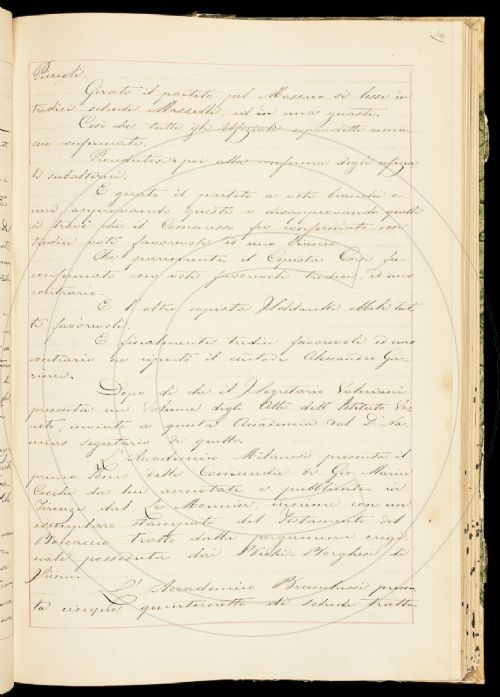 Piccioli.
Girato il partito pel Massaro si lesse in
tredici schede Massetti, ed in una guasti.
Così che tutti gli Offiziali sopradetti anda-
rono confermati.
Procedutosi poi alla conferma degli offizia
li subalterni.
E girato il partito a voti bianchi e
neri, approvando questi e disapprovando quelli
si trovò che il Commesso fu confermato con
tredici voti favorevoli ed uno bianco.
Che parimente il Copista Casi fu
confermato con voti favorevoli tredici, ed uno
contrario.
E l'altro copista ebbeli tut
ti favorevoli.
E finalmente tredici favorevoli ed uno
contrario ne riportò il custode Alessandro
Dopo di che il Segretario
presenta un Volume degli Atti dell'Istituto Ve
neto inviato a questa Accademia dal D. Na
mias segretario di quello.
L'Accademico Milanesi presenta il
primo Tomo delle Commedie di Gio: Maria
Cecchi da lui annotate e pubblicate in
Firenze dal Le Monnier, insieme con un
esemplare stampato del Testamento del
Boccaccio tratto dalla pergamena origi
nale posseduta dai Borghesi di
Siena.
L'Accademico presen
ta cinque quinternetti di schede tratte